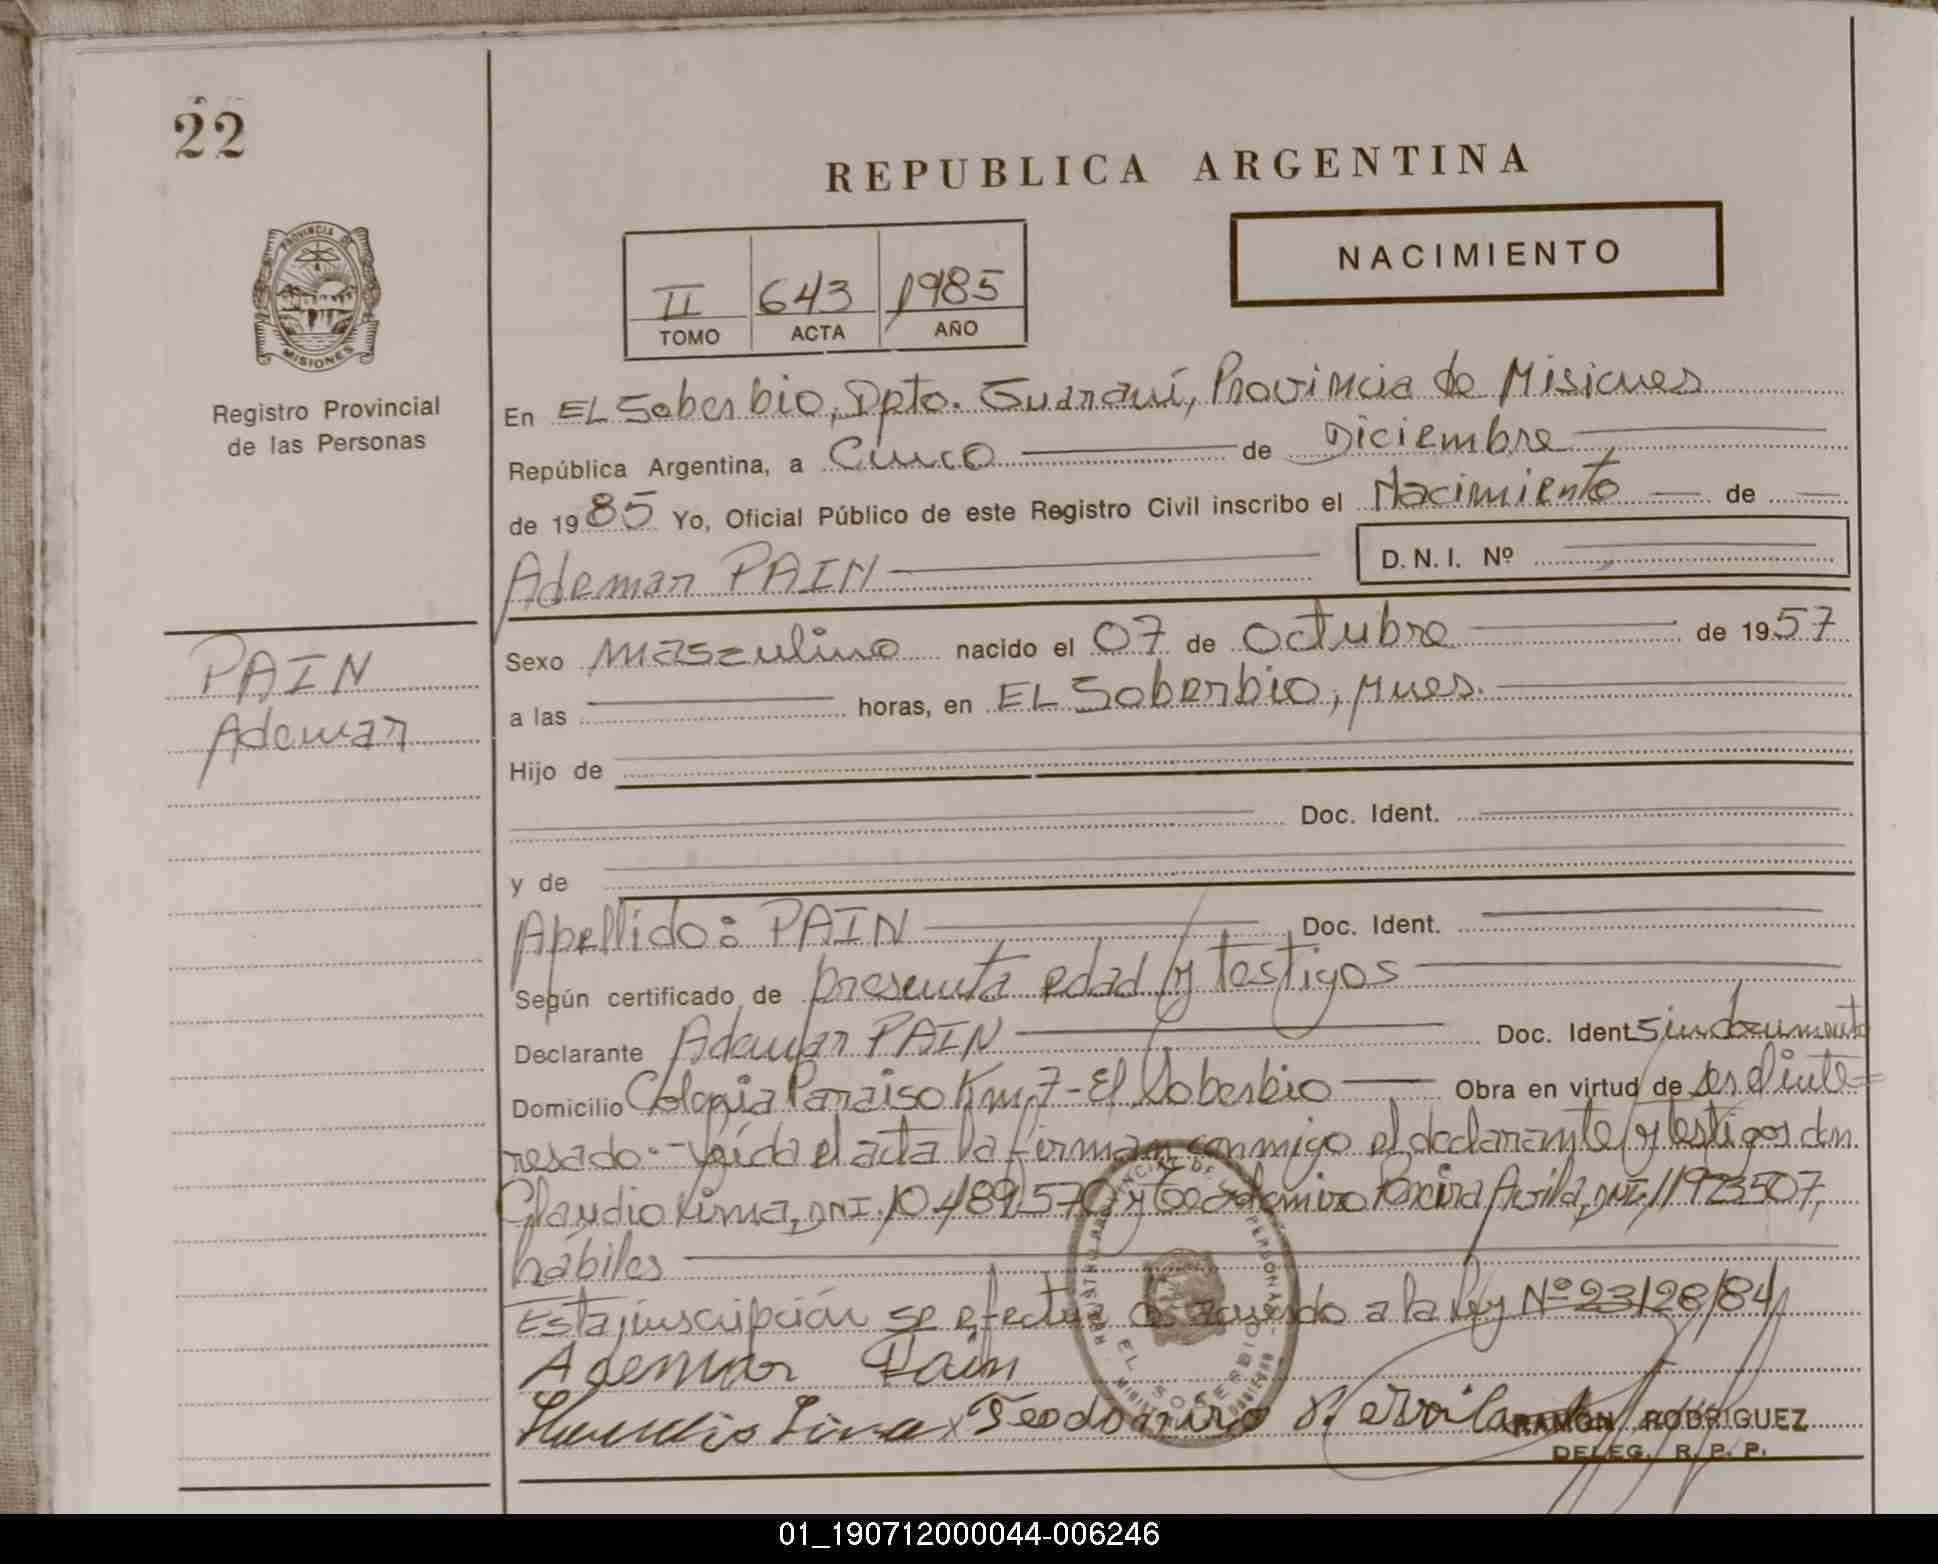 22
REPUBLICA ARGENTINA
NACIMIENTO
II 643 1985
TOMO ACTA AÑO
PROVINCIA DE
MISIONES
Registro Provincial
de las Personas
PAIN
Ademar
En EL Soberbio, Dpto. Guaraní, Provincia de Misiones
República Argentina, a Cinco de Diciembre
de 1985 Yo, Oficial Público de este Registro Civil inscribo el Nacimiento de
Ademar PAIN D. N. I. Nº
Sexo masculino nacido el 07 de octubre de 1957
a las horas, en EL Soberbio, Mnes.
Hijo de
Doc. Ident.
y de
Apellido: PAIN Doc. Ident.
Según certificado de presunta edad y testigos
Declarante Ademar PAIN Doc. Ident Sin documento
Domicilio Colonia Paraiso Km. 7 - El Soberbio Obra en virtud de ser el inte=
resado.- Leída el acta la firman conmigo el declarante y testigos don
Claudio Lima, DNI. 10.489.570 y Teodomiro Avila, DNI. 11923507,
habiles
Esta inscripción se efectua de acuerdo a la ley Nº 23128/84
Ademar Pain
Lima x Teodomiro P. Avila
RAMON RODRIGUEZ
DELEG. R. P. P.
EL SOBERBIO
01_190712000044-006246